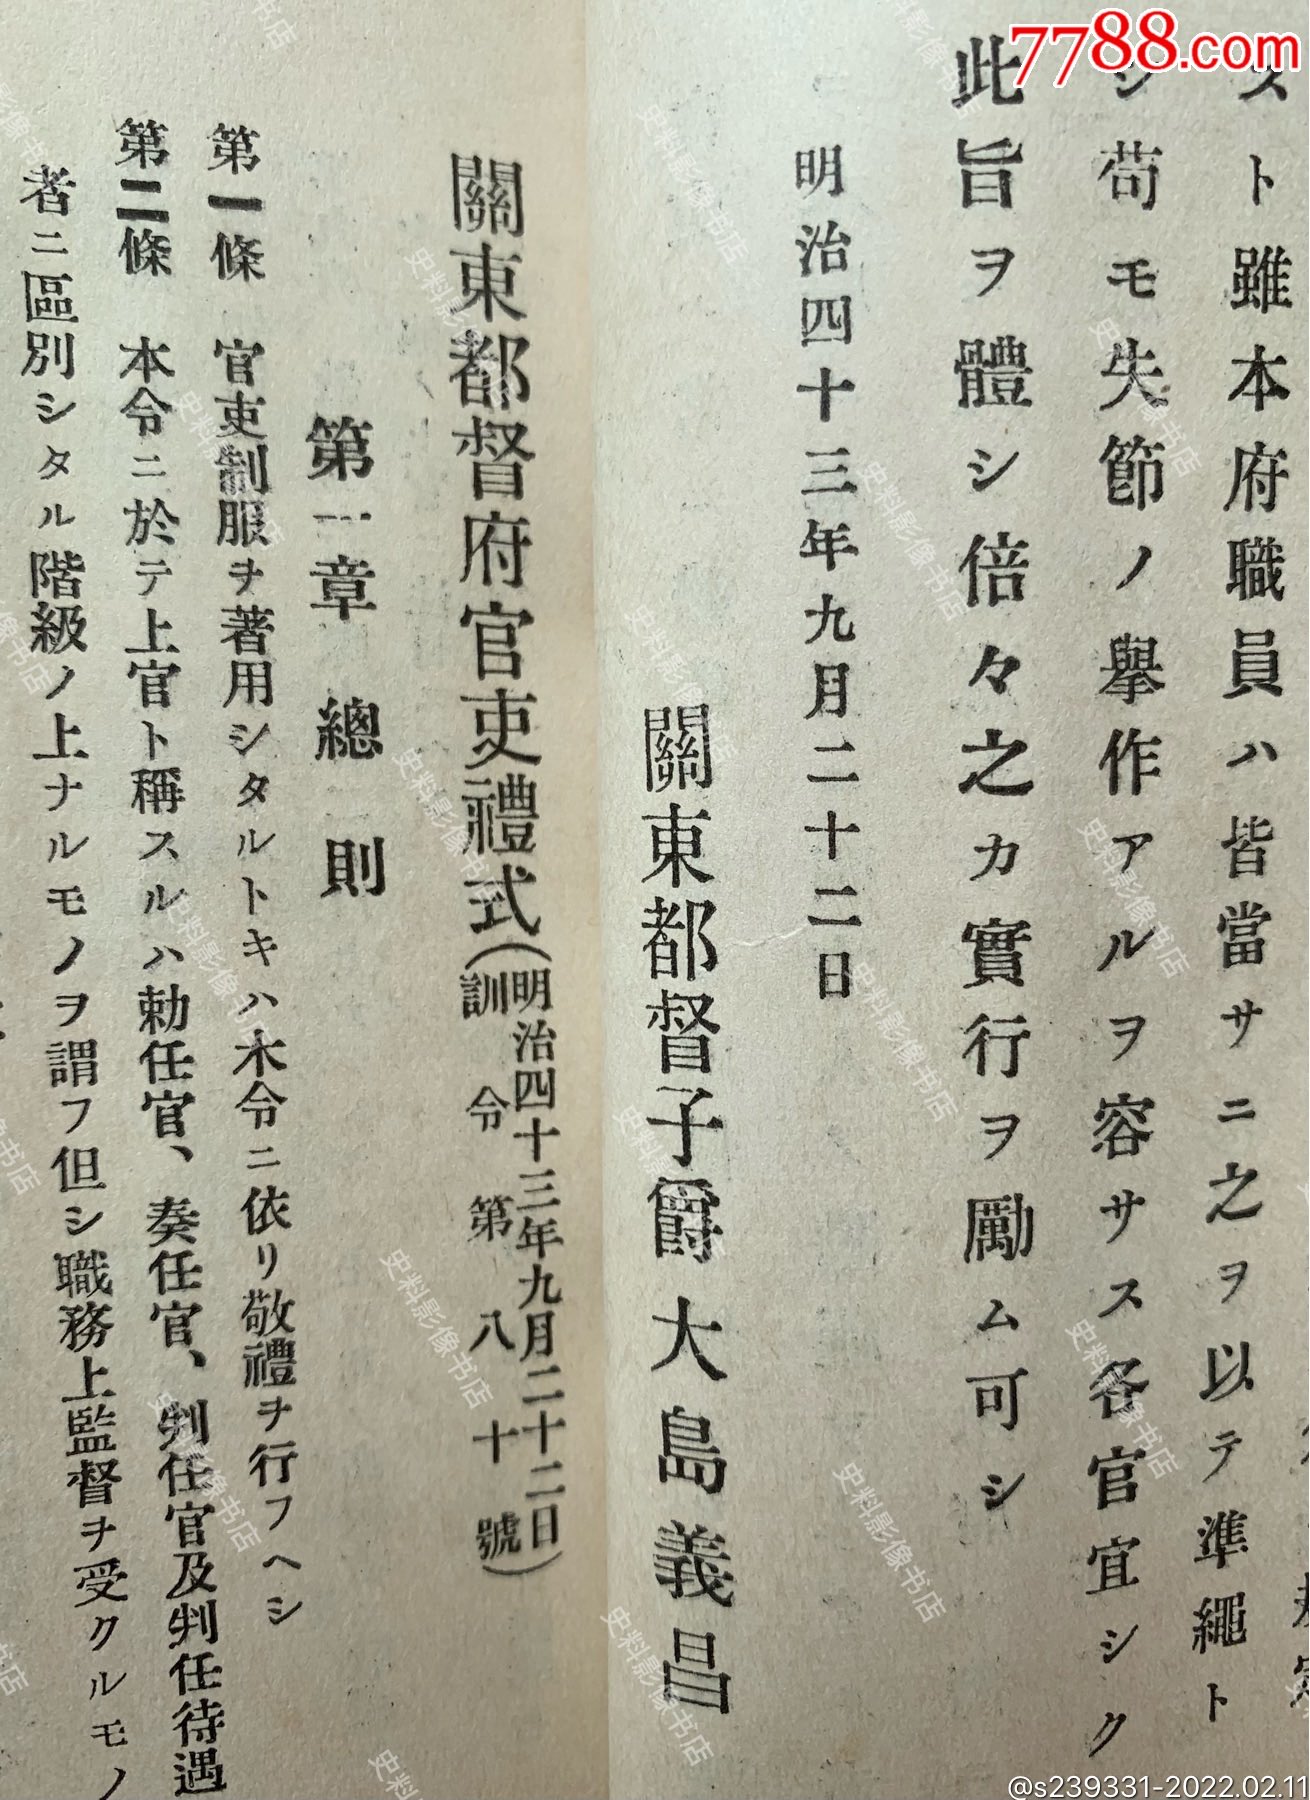 スト雖本府職員ハ皆當サニ之ヲ以テ準繩ト
シ苟モ失節ノ擧作アルヲ容サス各官宜シク
此旨ヲ體シ倍々之カ實行ヲ勵ム可シ
明治四十三年九月二十二日
關東都督子爵大島義昌
關東都督府官吏禮式(明治四十三年九月二十二日
訓令第八十號)
第一章 總則
第一條 官吏制服ヲ著用シタルトキハ本令ニ依リ敬禮ヲ行フヘシ
第二條 本令ニ於テ上官ト稱スルハ勅任官、奏任官、判任官及判任待遇
者ニ區別シタル階級ノ上ナルモノヲ謂フ但シ職務上監督ヲ受クルモノ
7788.com
@s239331-2022.02.11
史料影像书店